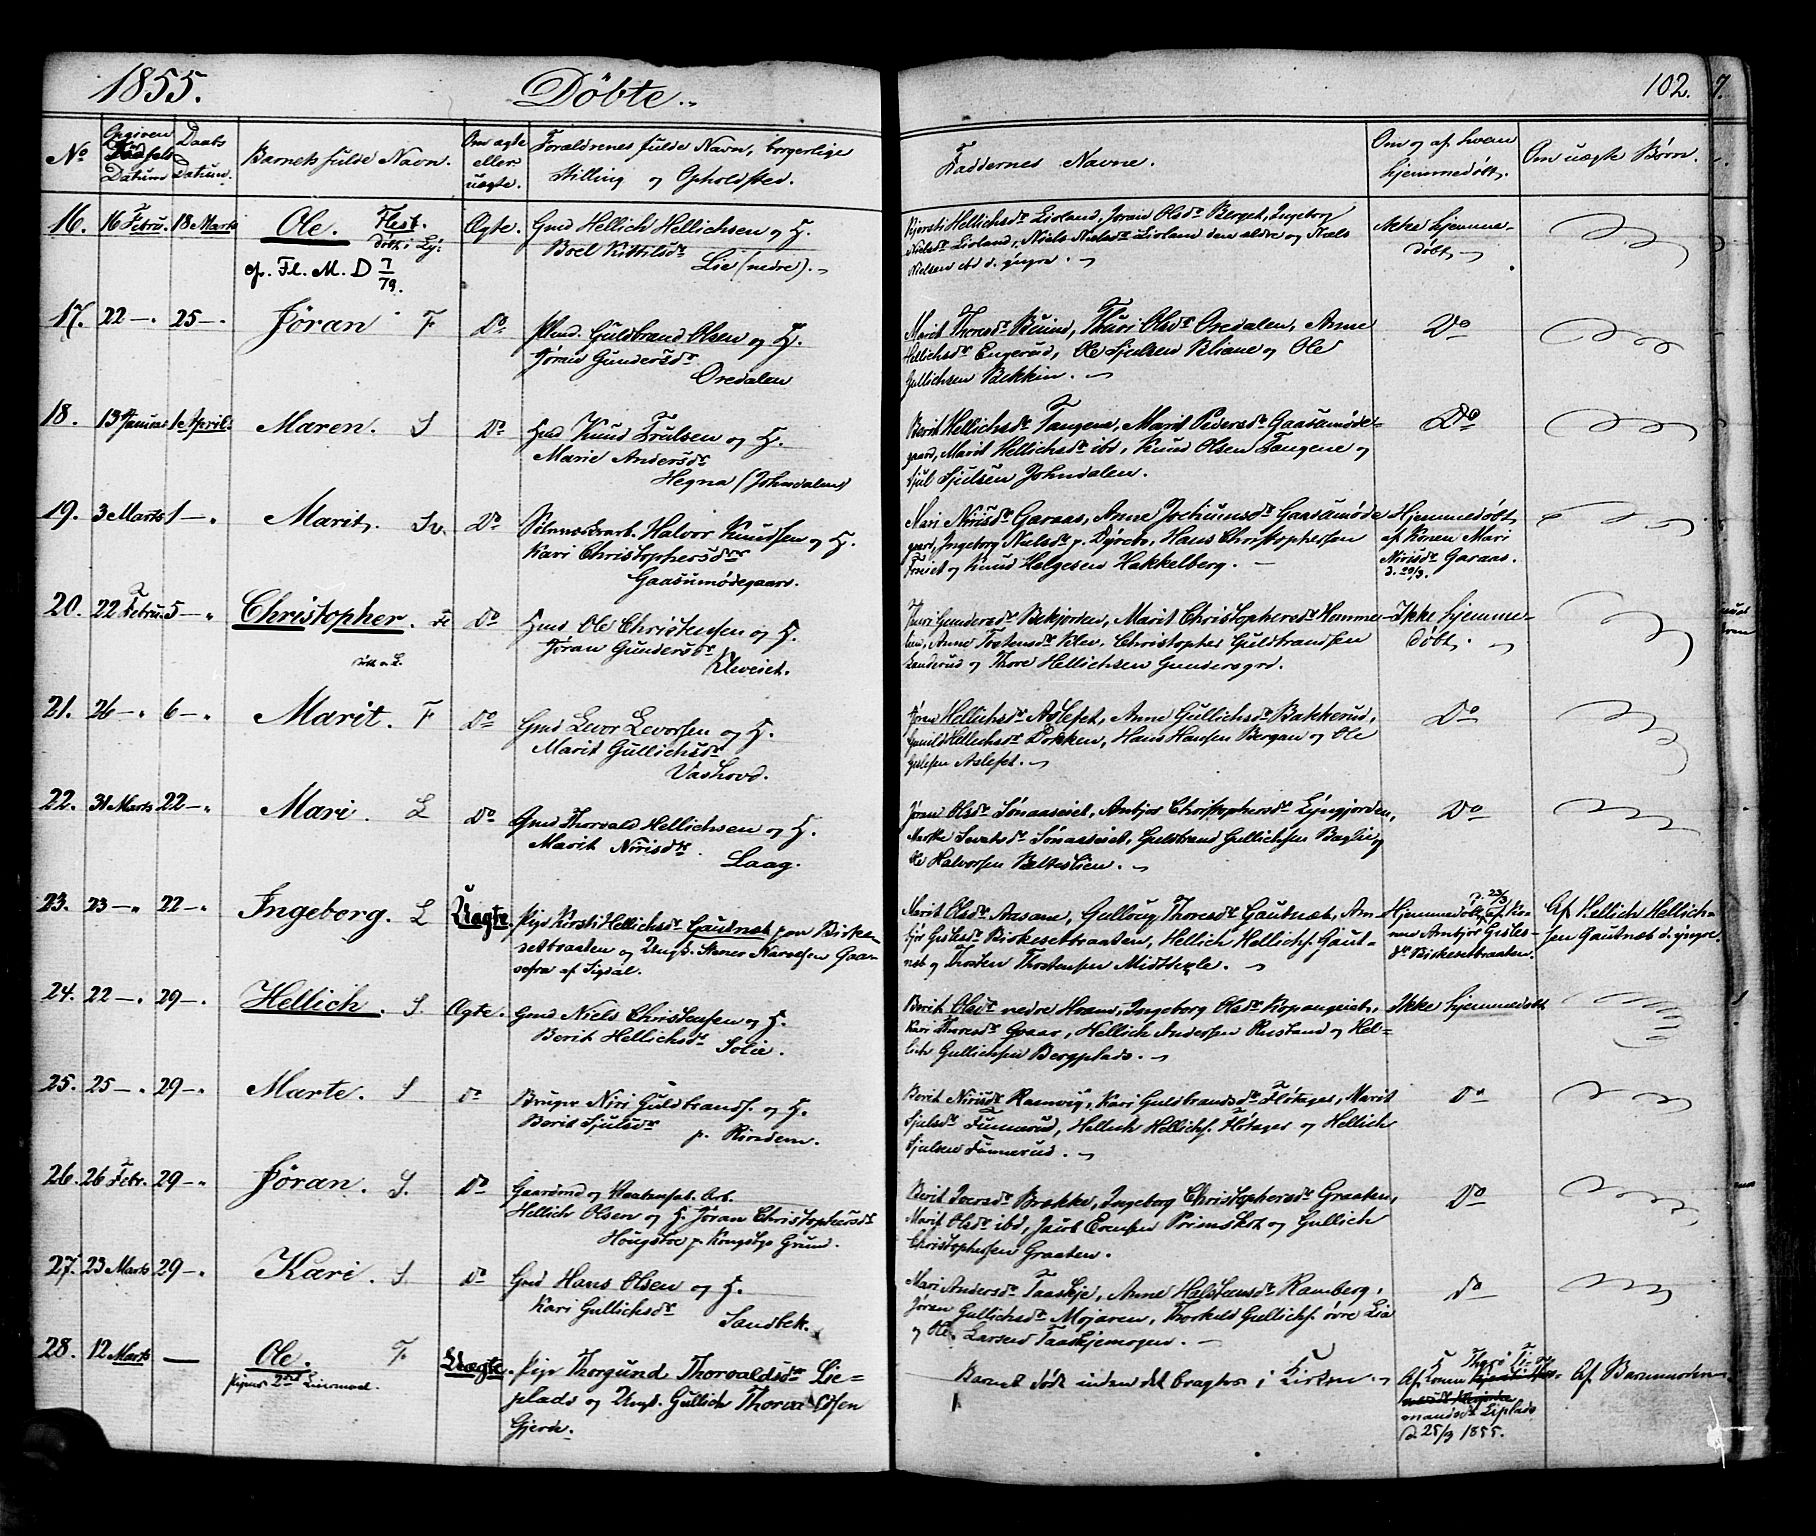 1855. Döbte. 102.
No
Opgiven Födsels Datum
Daabs Datum.
Barnets fulde Navn.
Om ægte eller uægte.
Forældrenes fulde Navn, borgerlige
Stilling og Opholdsted.
Faddernes Navne.
Om og af hvem
hjemmedöbt.
Om uægte Börn.
16. 16 Febru. 18 Marts Ole. Flest. Ægte. Gmd Hellich Hellichsen og H.
Boel Kittilsdr
Lie (nedre).
cfr. Fl. M. D 7/79.
Kjersti Hellichsdr Lioland, Jöran Olsdr Berget, Ingeborg
Nielsdr Lioland, Niels Nielsdr Lioland den ældre og Niels
Nielsen ibd d. yngre.
Ikke hjemme-
döbt
17. 22 — 25 — Jöran F Do Gulbrand Olsen og H.
Jöran Gundersdr
Oredalen
Marit Thoresdr Thuri Olsdr Oredalen, Anne
Hellichsdr Engerud, Ole Sjulsen og Ole
Gullichsen Bekkin.
Do
18. 13 Januar 1 April Maren. S Do Gmd Knud Trulsen og H.
Marie Andersdr
Hegna (Johndalen)
Berit Hellichsdr Tangene, Marit Pedersdr Gaasumöde-
gaard, Marit Hellichsdr ibd, Knud Olsen Tangene og
Sjul Sjulsen Johndalen.
Do
19. 3 Marts 1 — Marit. Sv. Do Sölvværksarb. Halvor Knudsen og H.
Kari Christophersdr
Gaasumödegaard.
Mari Nirisdr Garaas, Anne Jochumsdr Gaasumöde
gaard, Ingeborg Nielsdr p. Dyrebo, Hans Christophersen
og Knud Helgesen Hakkelberg.
Hjemmedöbt
af Konen Mari
Nirisdr Garaas.
d. 20/3.
20. 22 Febru. 5 — Christopher. Fl Do Gmd Ole Christensen og H.
Jöran Gundersdr
Kleveiet.
Thuri Gundersdr Bekjorden, Marit Christophersdr Homme-
len, Anne Tostensdr Klev, Christopher Guldbrandsen
Landerud og Thore Hellichsen Gundersgrd.
Ikke hjemme-
döbt.
21. 26 — 6 — Marit. F Do Gmd Levor Levorsen og H.
Marit Gullichsdr
Vashovd.
Jöran Hellichsdr Aslefet, Anne Gullichsdr Bakkerud,
Gunild Hellichsdr Dokken, Hans Hansen Bergan og Ole
Gislesen Aslefet.
Do
22. 31 Marts 22 — Mari. L Do Gmd Thorvald Hellichsen og H.
Marit Nirisdr
Laag.
Jöran Olsdr Sönaaseiet, Ambjör Christophersdr Lyngjorden,
Marthe Sönaaseiet, Guldbrand Gullichsen Baglie og
Ole Halvorsen Beltestlien.
Do
23. 23 — 22 — Ingeborg. L Uægte. Pige Kirsti Hellichsdr Gautnæt paa Birke-
setbraaten og Ungk. Stener Narvesen Gaa-
sefra af Sigdal.
Marit Olsdr Aasam, Gullaug Thoresdr Gautnæt, Am-
björ Gislesdr Birkesetbraaten, Hellich Hellichs. Gaut-
næt og Thosten Thostensen Midtteigle.
Hjemmedöbt d. 23/3 af Ko-
nen Ambjör Gisles-
dr Birkesetbraaten.
Af Hellich Hellich-
sen Gautnæt d. yngre.
24. 22 — 29 — Hellich. S. Ægte. Gmd Niels Christensen og H.
Berit Hellichsdr
Solie.
Berit Olsdr nedre Moand, Ingeborg Olsdr Kopangeiet,
Kari Thoresdr Graar, Hellich Andersen Rustand og Hel-
lich Gullichsen Bergplads.
Ikke hjemmedöbt
25. 25 — 29 — Marte. S do Bruger Niri Guldbrands. og H.
Berit Sjulsdr
p. Rindem.
Berit Nirisdr Ramvig, Kari Guldbrandsdr Flötager, Marit
Sjulsdr Funnerud, Hellich Hellichs. Flötager og Hellich
Sjulsen Funnerud.
Do
26. 26 Febr. 29 — Jöran. S. Do Gaardmd og Arb.
Hellich Olsen og H. Jöran Christophersdr
Hougstoe p. Kongsbgs Grund.
Berit Iversdr Brække, Ingeborg Christophersdr Graaten,
Marit Olsdr ibd, Jacob Evensen og Gullich
Christophersen Graaten.
Do
27. 23 Marts 29 — Kari. S. Do Gmd Hans Olsen og H.
Kari Gullichsdr
Sandbek.
Mari Andersdr Taaskje, Anne Halstensdr Ramberg,
Jöran Gullichsdr Mojaren, Thorkild Gullichs. övre Lia
og Ole Larsen Taaskjemogen.
Do
28. 12 Marts — Ole. F. Uægte. Pige Thorgund Thorvaldsdr Lie-
plads og Ungk. Gullich Thorvaldsen
Gjerde.
Barnet döde inden det bragtes i Kirken.
Af Konen
mandsdr Lieplads
d 25/3 1855.
Af Barnmoder